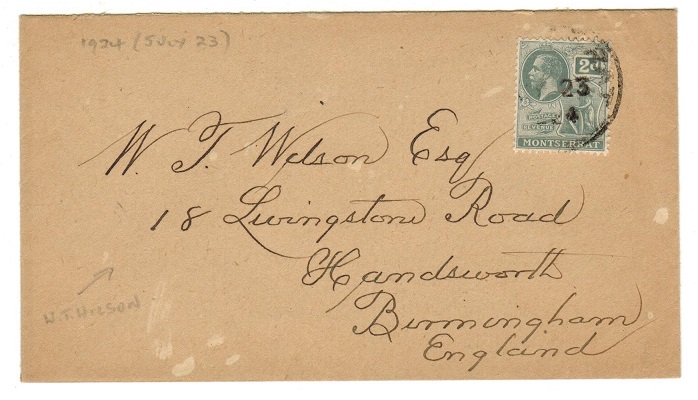 1924 (JULY 23)
2d
23
4
POSTAGE
REVENUE
MONTSERRAT
W. T. Wilson Esq
18 Livingstone Road
Handsworth
Birmingham
England
W.T. WILSON